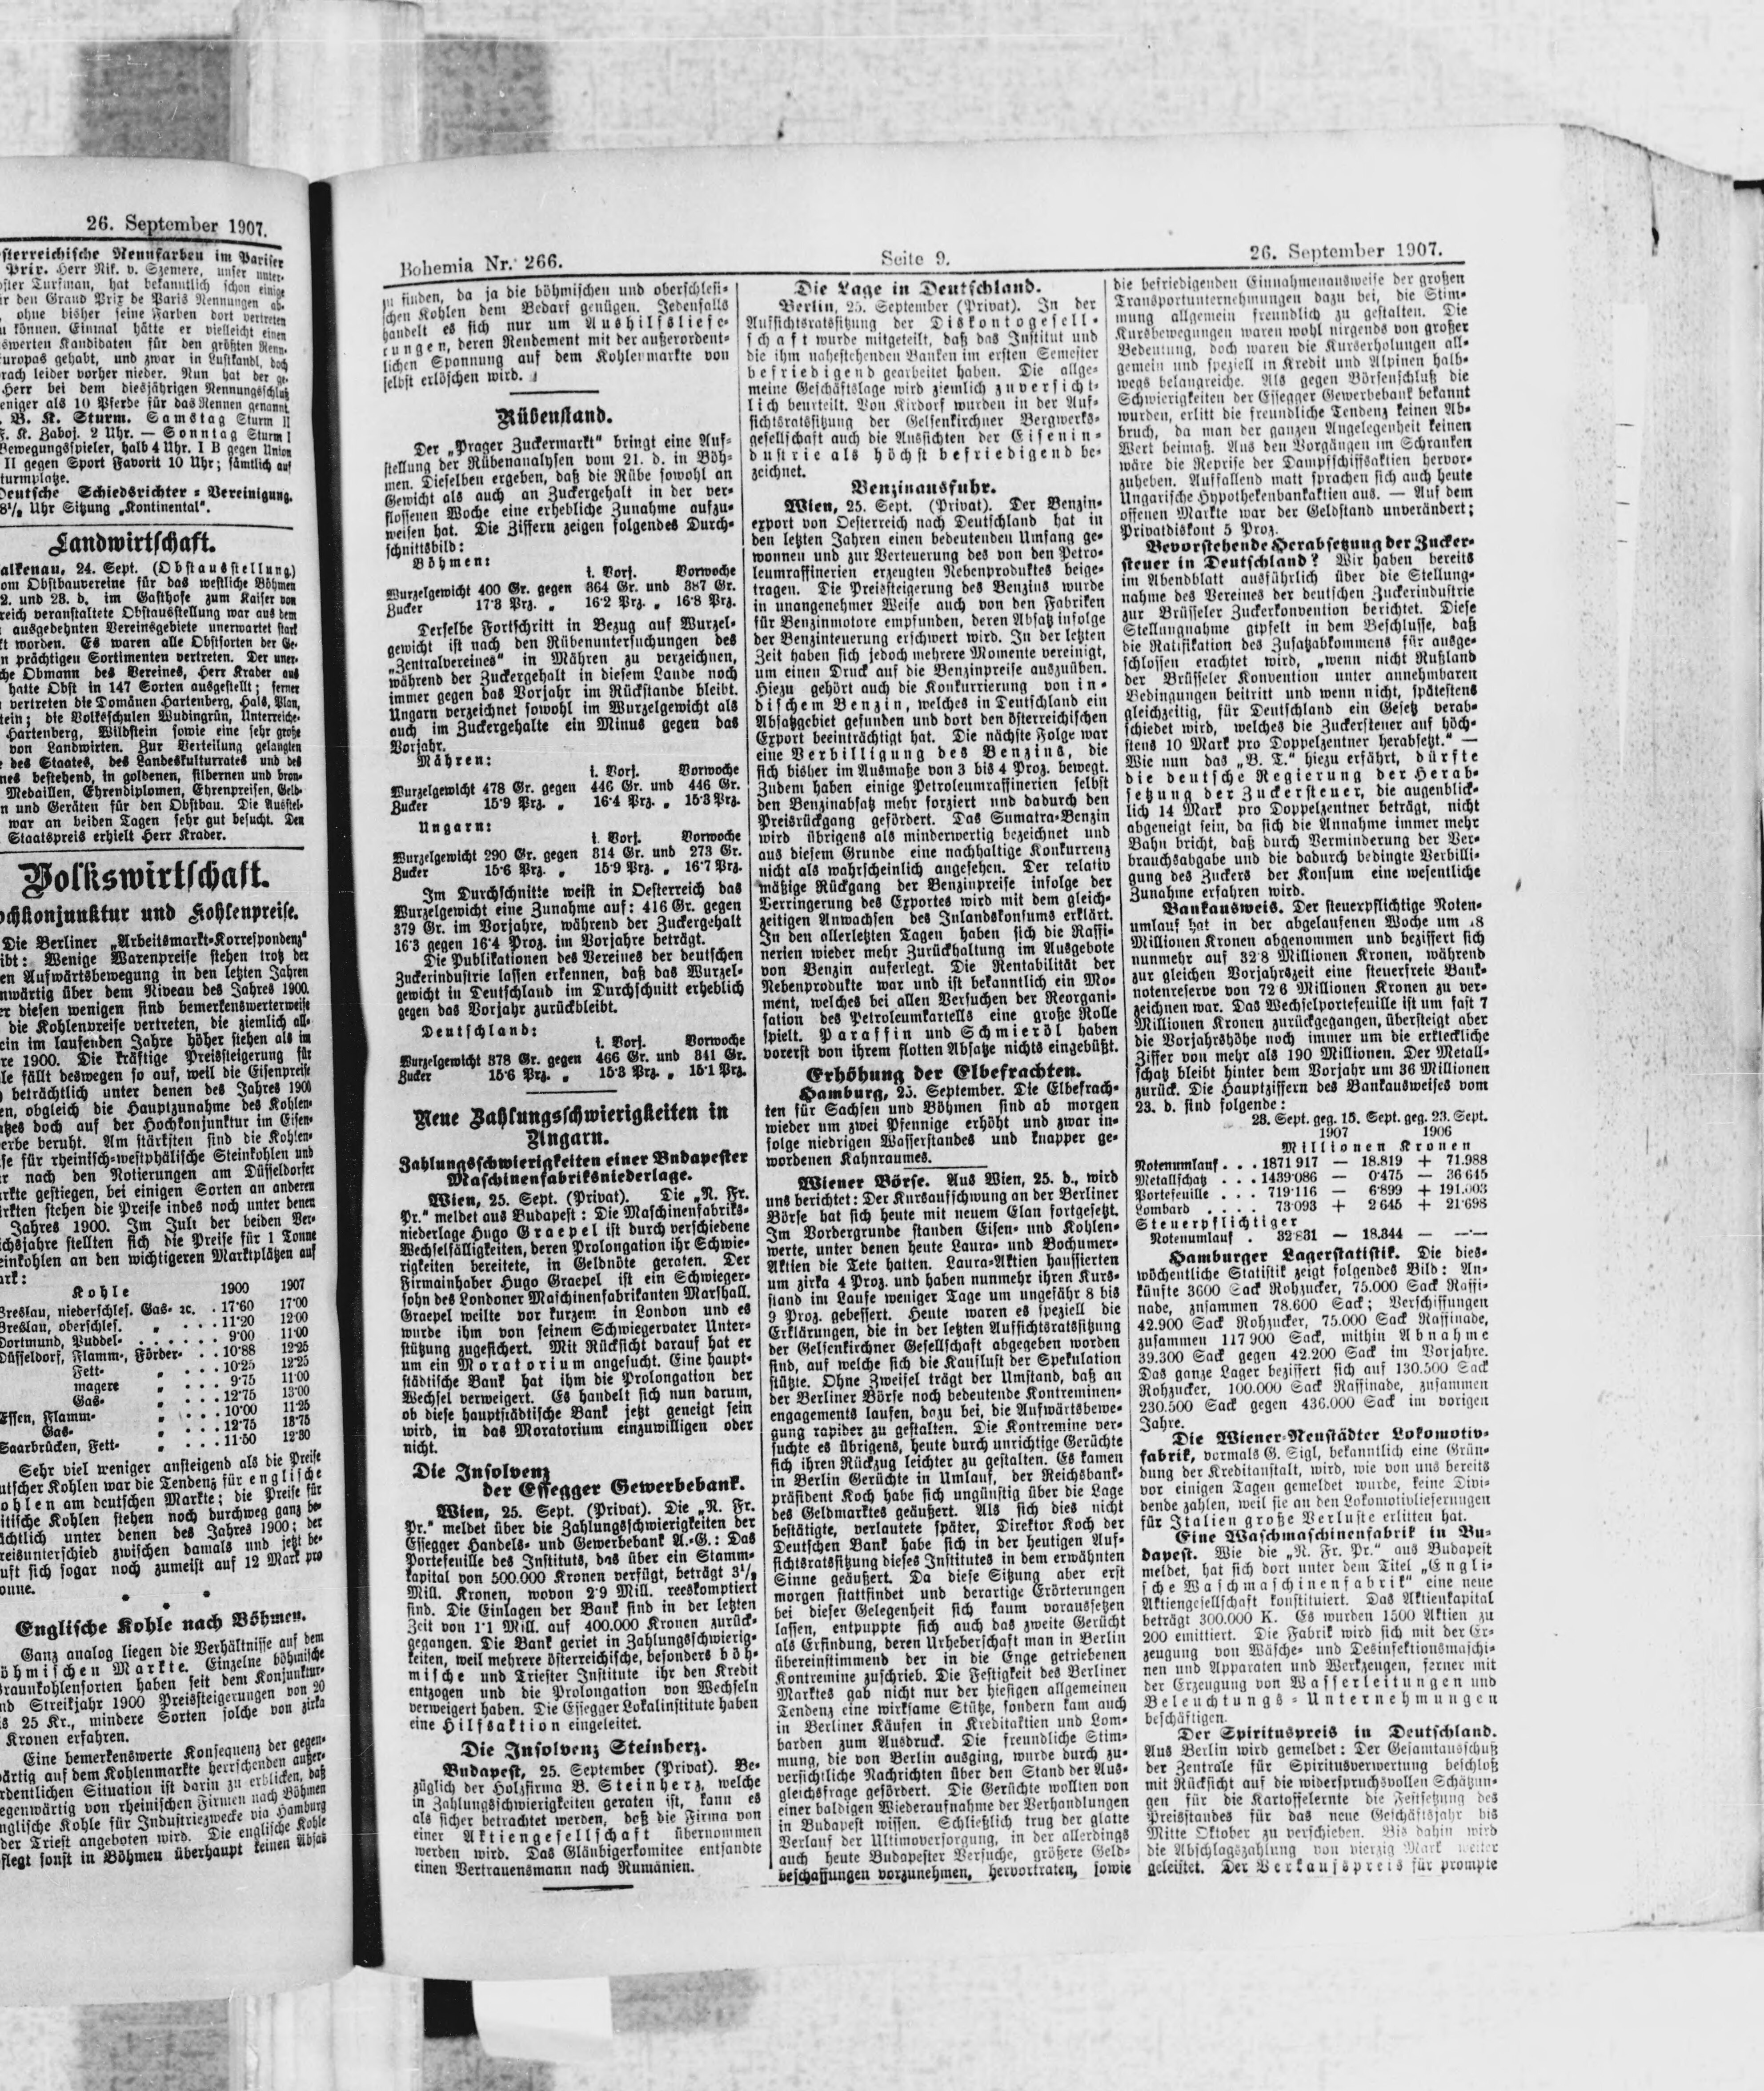 26. September 1907.
sterreichische Rennfarben im Pariser
Prix. Herr Nik. v. Szemere, unser unter-
ster Turfman, hat bekanntlich schon einige
ir den Grand Prix de Paris Nennungen ab-
, ohne bisher seine Farben dort vertreten
u können. Einmal hätte er vielleicht einen
swerten Kandidaten für den größten Renn-
Europas gehabt, und zwar in Lustkandl, doch
rach leider vorher nieder. Nun hat der ge-
Herr bei dem diesjährigen Nennungsschluß
eniger als 10 Pferde für das Rennen genannt.
. B. K. Sturm. Samstag Sturm II
F. K. Zaboj. 2 Uhr. — Sonntag Sturm I
Bewegungsspieler, halb 4 Uhr. I B gegen Union
II gegen Sport Favorit 10 Uhr; sämtlich auf
turmplatze.
Deutsche Schiedsrichter-Vereinigung.
8½ Uhr Sitzung „Kontinental“.
Landwirtschaft.
alkenau, 24. Sept. (Obstausstellung)
om Obstbauvereine für das westliche Böhmen
2. und 23. d. im Gasthofe zum Kaiser von
reich veranstaltete Obstausstellung war aus dem
ausgedehnten Vereinsgebiete unerwartet stark
kt worden. Es waren alle Obstsorten der Ge-
n prächtigen Sortimenten vertreten. Der uner-
che Obmann des Vereines, Herr Kraber aus
hatte Obst in 147 Sorten ausgestellt; ferner
vertreten die Domänen Hartenberg, Hals, Plan,
tein; die Volksschulen Wudingrün, Unterreiche-
Hartenberg, Wildstein sowie eine sehr große
von Landwirten. Zur Verteilung gelangten
e des Staates, des Landeskulturrates und des
nes bestehend, in goldenen, silbernen und bron-
Medaillen, Ehrendiplomen, Ehrenpreisen, Geld-
n und Geräten für den Obstbau. Die Ausstel-
war an beiden Tagen sehr gut besucht. Den
Staatspreis erhielt Herr Kraber.
Volkswirtschaft.
ochkonjunktur und Kohlenpreise.
Die Berliner „Arbeitsmarkt-Korrespondenz“
ibt: Wenige Warenpreise stehen trotz der
en Aufwärtsbewegung in den letzten Jahren
nwärtig über dem Niveau des Jahres 1900.
er diesen wenigen sind bemerkenswerterweise
die Kohlenpreise vertreten, die ziemlich all-
ein im laufenden Jahre höher stehen als im
re 1900. Die kräftige Preissteigerung für
le fällt deswegen so auf, weil die Eisenpreise
beträchtlich unter denen des Jahres 1900
en, obgleich die Hauptzunahme des Kohlen-
atzes doch auf der Hochkonjunktur im Eisen-
erbe beruht. Am stärksten sind die Kohlen-
se für rheinisch-westphälische Steinkohlen und
r nach den Notierungen am Düsseldorfer
rkte gestiegen, bei einigen Sorten an anderen
rkten stehen die Preise indes noch unter denen
Jahres 1900. Im Juli der beiden Ver-
ichsjahre stellten sich die Preise für 1 Tonne
einkohlen an den wichtigeren Marktplätzen auf
ark:
Kohle 1900 1907
Breslau, niederschles. Gas- ꝛc. . 17·60 17·00
Breslau, oberschles. „ . . . 11·20 12·00
Dortmund, Puddel- . . . . . . 9·00 11·00
Düsseldorf, Flamm-, Förder- . . 10·88 12·25
Fett- „ . . . 10·25 12·25
magere „ . . . 9·75 11·00
Gas- „ . . . 12·75 13·00
Essen, Flamm- „ . . . 10·00 11·25
Gas- „ . . . 12·75 13·75
Saarbrücken, Fett- „ . . . 11·50 12·80
Sehr viel weniger ansteigend als die Preise
utscher Kohlen war die Tendenz für englische
ohlen am deutschen Markte; die Preise für
itische Kohlen stehen noch durchweg ganz be-
ächtlich unter denen des Jahres 1900; der
reisunterschied zwischen damals und jetzt be-
uft sich sogar noch zumeist auf 12 Mark pro
onne.
Englische Kohle nach Böhmen.
Ganz analog liegen die Verhältnisse auf dem
öhmischen Markte. Einzelne böhmische
Braunkohlensorten haben seit dem Konjunktur-
nd Streikjahr 1900 Preissteigerungen von 20
is 25 Kr., mindere Sorten solche von zirka
Kronen erfahren.
Eine bemerkenswerte Konsequenz der gegen-
ärtig auf dem Kohlenmarkte herrschenden außer-
rdentlichen Situation ist darin zu erblicken, daß
egenwärtig von rheinischen Firmen nach Böhmen
nglische Kohle für Industriezwecke via Hamburg
der Triest angeboten wird. Die englische Kohle
flegt sonst in Böhmen überhaupt keinen Absatz
Bohemia Nr. 266.
Seite 9.
26. September 1907.
zu finden, da ja die böhmischen und oberschlesi-
schen Kohlen dem Bedarf genügen. Jedenfalls
handelt es sich nur um Aushilfsliefe-
rungen, deren Rendement mit der außerordent-
lichen Spannung auf dem Kohlenmarkte von
selbst erlöschen wird.
Rübenstand.
Der „Prager Zuckermarkt“ bringt eine Auf-
stellung der Rübenanalysen vom 21. d. in Böh-
men. Dieselben ergeben, daß die Rübe sowohl an
Gewicht als auch an Zuckergehalt in der ver-
flossenen Woche eine erhebliche Zunahme aufzu-
weisen hat. Die Ziffern zeigen folgendes Durch-
schnittsbild:
Böhmen:
i. Vorj. Vorwoche
Wurzelgewicht 400 Gr. gegen 364 Gr. und 387 Gr.
Zucker 17·3 Prz. „ 16·2 Prz. „ 16·8 Prz.
Derselbe Fortschritt in Bezug auf Wurzel-
gewicht ist nach den Rübenuntersuchungen des
„Zentralvereines“ in Mähren zu verzeichnen,
während der Zuckergehalt in diesem Lande noch
immer gegen das Vorjahr im Rückstande bleibt.
Ungarn verzeichnet sowohl im Wurzelgewicht als
auch im Zuckergehalte ein Minus gegen das
Vorjahr.
Mähren:
i. Vorj. Vorwoche
Wurzelgewicht 478 Gr. gegen 446 Gr. und 446 Gr.
Zucker 15·9 Prz. „ 16·4 Prz. „ 15·3 Prz.
Ungarn:
i. Vorj. Vorwoche
Wurzelgewicht 290 Gr. gegen 314 Gr. und 273 Gr.
Zucker 15·6 Prz. „ 15·9 Prz. „ 16·7 Prz.
Im Durchschnitte weist in Oesterreich das
Wurzelgewicht eine Zunahme auf: 416 Gr. gegen
379 Gr. im Vorjahre, während der Zuckergehalt
16·3 gegen 16·4 Proz. im Vorjahre beträgt.
Die Publikationen des Vereines der deutschen
Zuckerindustrie lassen erkennen, daß das Wurzel-
gewicht in Deutschland im Durchschnitt erheblich
gegen das Vorjahr zurückbleibt.
Deutschland:
i. Vorj. Vorwoche
Wurzelgewicht 378 Gr. gegen 466 Gr. und 341 Gr.
Zucker 15·6 Prz. „ 15·3 Prz. „ 15·1 Prz.
Neue Zahlungsschwierigkeiten in
Ungarn.
Zahlungsschwierigkeiten einer Budapester
Maschinenfabriksniederlage.
Wien, 25. Sept. (Privat). Die „N. Fr.
Pr.“ meldet aus Budapest: Die Maschinenfabriks-
niederlage Hugo Graepel ist durch verschiedene
Wechselfälligkeiten, deren Prolongation ihr Schwie-
rigkeiten bereitete, in Geldnöte geraten. Der
Firmainhaber Hugo Graepel ist ein Schwieger-
sohn des Londoner Maschinenfabrikanten Marshall.
Graepel weilte vor kurzem in London und es
wurde ihm von seinem Schwiegervater Unter-
stützung zugesichert. Mit Rücksicht darauf hat er
um ein Moratorium angesucht. Eine haupt-
städtische Bank hat ihm die Prolongation der
Wechsel verweigert. Es handelt sich nun darum,
ob diese hauptstädtische Bank jetzt geneigt sein
wird, in das Moratorium einzuwilligen oder
nicht.
Die Insolvenz
der Essegger Gewerbebank.
Wien, 25. Sept. (Privat). Die „N. Fr.
Pr.“ meldet über die Zahlungsschwierigkeiten der
Essegger Handels- und Gewerbebank A.-G.: Das
Portefeuille des Instituts, das über ein Stamm-
kapital von 500.000 Kronen verfügt, beträgt 3½
Mill. Kronen, wovon 2·9 Mill. reeskomptiert
sind. Die Einlagen der Bank sind in der letzten
Zeit von 1·1 Mill. auf 400.000 Kronen zurück-
gegangen. Die Bank geriet in Zahlungsschwierig-
keiten, weil mehrere österreichische, besonders böh-
mische und Triester Institute ihr den Kredit
entzogen und die Prolongation von Wechseln
verweigert haben. Die Essegger Lokalinstitute haben
eine Hilfsaktion eingeleitet.
Die Insolvenz Steinherz.
Budapest, 25. September (Privat). Be-
züglich der Holzfirma B. Steinherz, welche
in Zahlungsschwierigkeiten geraten ist, kann es
als sicher betrachtet werden, daß die Firma von
einer Aktiengesellschaft übernommen
werden wird. Das Gläubigerkomitee entsandte
einen Vertrauensmann nach Rumänien.
Die Lage in Deutschland.
Berlin, 25. September (Privat). In der
Aufsichtsratssitzung der Diskontogesell-
schaft wurde mitgeteilt, daß das Institut und
die ihm nahestehenden Banken im ersten Semester
befriedigend gearbeitet haben. Die allge-
meine Geschäftslage wird ziemlich zuversicht-
lich beurteilt. Von Kirdorf wurden in der Auf-
sichtsratssitzung der Gelsenkirchner Bergwerks-
gesellschaft auch die Aussichten der Eisenin-
dustrie als höchst befriedigend be-
zeichnet.
Benzinausfuhr.
Wien, 25. Sept. (Privat). Der Benzin-
export von Oesterreich nach Deutschland hat in
den letzten Jahren einen bedeutenden Umfang ge-
wonnen und zur Verteuerung des von den Petro-
leumraffinerien erzeugten Nebenproduktes beige-
tragen. Die Preissteigerung des Benzins wurde
in unangenehmer Weise auch von den Fabriken
für Benzinmotore empfunden, deren Absatz infolge
der Benzinteuerung erschwert wird. In der letzten
Zeit haben sich jedoch mehrere Momente vereinigt,
um einen Druck auf die Benzinpreise auszuüben.
Hiezu gehört auch die Konkurrierung von in-
dischem Benzin, welches in Deutschland ein
Absatzgebiet gefunden und dort den österreichischen
Export beeinträchtigt hat. Die nächste Folge war
eine Verbilligung des Benzins, die
sich bisher im Ausmaße von 3 bis 4 Proz. bewegt.
Zudem haben einige Petroleumraffinerien selbst
den Benzinabsatz mehr forziert und dadurch den
Preisrückgang gefördert. Das Sumatra-Benzin
wird übrigens als minderwertig bezeichnet und
aus diesem Grunde eine nachhaltige Konkurrenz
nicht als wahrscheinlich angesehen. Der relativ
mäßige Rückgang der Benzinpreise infolge der
Verringerung des Exportes wird mit dem gleich-
zeitigen Anwachsen des Inlandskonsums erklärt.
In den allerletzten Tagen haben sich die Raffi-
nerien wieder mehr Zurückhaltung im Ausgebote
von Benzin auferlegt. Die Rentabilität der
Nebenprodukte war und ist bekanntlich ein Mo-
ment, welches bei allen Versuchen der Reorgani-
sation des Petroleumkartells eine große Rolle
spielt. Paraffin und Schmieröl haben
vorerst von ihrem flotten Absatze nichts eingebüßt.
Erhöhung der Elbefrachten.
Hamburg, 25. September. Die Elbefrach-
ten für Sachsen und Böhmen sind ab morgen
wieder um zwei Pfennige erhöht und zwar in-
folge niedrigen Wasserstandes und knapper ge-
wordenen Kahnraumes.
Wiener Börse. Aus Wien, 25. d., wird
uns berichtet: Der Kursaufschwung an der Berliner
Börse hat sich heute mit neuem Elan fortgesetzt.
Im Vordergrunde standen Eisen- und Kohlen-
werte, unter denen heute Laura- und Bochumer-
Aktien die Tete hatten. Laura-Aktien haussierten
um zirka 4 Proz. und haben nunmehr ihren Kurs-
stand im Laufe weniger Tage um ungefähr 8 bis
9 Proz. gebessert. Heute waren es speziell die
Erklärungen, die in der letzten Aufsichtsratssitzung
der Gelsenkirchner Gesellschaft abgegeben worden
sind, auf welche sich die Kauflust der Spekulation
stützte. Ohne Zweifel trägt der Umstand, daß an
der Berliner Börse noch bedeutende Kontreminen-
engagements laufen, dazu bei, die Aufwärtsbewe-
gung rapider zu gestalten. Die Kontremine ver-
suchte es übrigens, heute durch unrichtige Gerüchte
sich ihren Rückzug leichter zu gestalten. Es kamen
in Berlin Gerüchte in Umlauf, der Reichsbank-
präsident Koch habe sich ungünstig über die Lage
des Geldmarktes geäußert. Als sich dies nicht
bestätigte, verlautete später, Direktor Koch der
Deutschen Bank habe sich in der heutigen Auf-
sichtsratssitzung dieses Institutes in dem erwähnten
Sinne geäußert. Da diese Sitzung aber erst
morgen stattfindet und derartige Erörterungen
bei dieser Gelegenheit sich kaum voraussetzen
lassen, entpuppte sich auch das zweite Gerücht
als Erfindung, deren Urheberschaft man in Berlin
übereinstimmend der in die Enge getriebenen
Kontremine zuschrieb. Die Festigkeit des Berliner
Marktes gab nicht nur der hiesigen allgemeinen
Tendenz eine wirksame Stütze, sondern kam auch
in Berliner Käufen in Kreditaktien und Lom-
barden zum Ausdruck. Die freundliche Stim-
mung, die von Berlin ausging, wurde durch zu-
versichtliche Nachrichten über den Stand der Aus-
gleichsfrage gefördert. Die Gerüchte wollten von
einer baldigen Wiederaufnahme der Verhandlungen
in Budapest wissen. Schließlich trug der glatte
Verlauf der Ultimoversorgung, in der allerdings
auch heute Budapester Versuche, größere Geld-
beschaffungen vorzunehmen, hervortraten, sowie
die befriedigenden Einnahmenausweise der großen
Transportunternehmungen dazu bei, die Stim-
mung allgemein freundlich zu gestalten. Die
Kursbewegungen waren wohl nirgends von großer
Bedeutung, doch waren die Kurserholungen all-
gemein und speziell in Kredit und Alpinen halb-
wegs belangreiche. Als gegen Börsenschluß die
Schwierigkeiten der Essegger Gewerbebank bekannt
wurden, erlitt die freundliche Tendenz keinen Ab-
bruch, da man der ganzen Angelegenheit keinen
Wert beimaß. Aus den Vorgängen im Schranken
wäre die Reprise der Dampfschiffsaktien hervor-
zuheben. Auffallend matt sprachen sich auch heute
Ungarische Hypothekenbankaktien aus. — Auf dem
offenen Markte war der Geldstand unverändert;
Privatdiskont 5 Proz.
Bevorstehende Herabsetzung der Zucker-
steuer in Deutschland? Wir haben bereits
im Abendblatt ausführlich über die Stellung-
nahme des Vereines der deutschen Zuckerindustrie
zur Brüsseler Zuckerkonvention berichtet. Diese
Stellungnahme gipfelt in dem Beschlusse, daß
die Ratifikation des Zusatzabkommens für ausge-
schlossen erachtet wird, „wenn nicht Rußland
der Brüsseler Konvention unter annehmbaren
Bedingungen beitritt und wenn nicht, spätestens
gleichzeitig, für Deutschland ein Gesetz verab-
schiedet wird, welches die Zuckersteuer auf höch-
stens 10 Mark pro Doppelzentner herabsetzt.“ —
Wie nun das „B. T.“ hiezu erfährt, dürfte
die deutsche Regierung der Herab-
setzung der Zuckersteuer, die augenblick-
lich 14 Mark pro Doppelzentner beträgt, nicht
abgeneigt sein, da sich die Annahme immer mehr
Bahn bricht, daß durch Verminderung der Ver-
brauchsabgabe und die dadurch bedingte Verbilli-
gung des Zuckers der Konsum eine wesentliche
Zunahme erfahren wird.
Bankausweis. Der steuerpflichtige Noten-
umlauf hat in der abgelaufenen Woche um 18
Millionen Kronen abgenommen und beziffert sich
nunmehr auf 32·8 Millionen Kronen, während
zur gleichen Vorjahrszeit eine steuerfreie Bank-
notenreserve von 72·6 Millionen Kronen zu ver-
zeichnen war. Das Wechselportefeuille ist um fast 7
Millionen Kronen zurückgegangen, übersteigt aber
die Vorjahrshöhe noch immer um die erkleckliche
Ziffer von mehr als 190 Millionen. Der Metall-
schatz bleibt hinter dem Vorjahr um 36 Millionen
zurück. Die Hauptziffern des Bankausweises vom
23. d. sind folgende:
23. Sept. geg. 15. Sept. geg. 23. Sept.
1907 1906
Millionen Kronen
Notenumlauf . . . 1871·917 — 18.819 + 71.988
Metallschatz . . . 1439·086 — 0·475 — 36·645
Portefeuille . . . 719·116 — 6·899 + 191.003
Lombard . . . . 73·093 + 2·645 + 21·698
Steuerpflichtiger
Notenumlauf . 32·831 — 18.344 — —·—
Hamburger Lagerstatistik. Die dies-
wöchentliche Statistik zeigt folgendes Bild: An-
künfte 3600 Sack Rohzucker, 75.000 Sack Raffi-
nade, zusammen 78.600 Sack; Verschiffungen
42.900 Sack Rohzucker, 75.000 Sack Raffinade,
zusammen 117 900 Sack, mithin Abnahme
39.300 Sack gegen 42.200 Sack im Vorjahre.
Das ganze Lager beziffert sich auf 130.500 Sack
Rohzucker, 100.000 Sack Raffinade, zusammen
230.500 Sack gegen 436.000 Sack im vorigen
Jahre.
Die Wiener-Neustädter Lokomotiv-
fabrik, vormals G. Sigl, bekanntlich eine Grün-
dung der Kreditanstalt, wird, wie von uns bereits
vor einigen Tagen gemeldet wurde, keine Divi-
dende zahlen, weil sie an den Lokomotivlieferungen
für Italien große Verluste erlitten hat.
Eine Waschmaschinenfabrik in Bu-
dapest. Wie die „N. Fr. Pr.“ aus Budapest
meldet, hat sich dort unter dem Titel „Engli-
sche Waschmaschinenfabrik“ eine neue
Aktiengesellschaft konstituiert. Das Aktienkapital
beträgt 300.000 K. Es wurden 1500 Aktien zu
200 emittiert. Die Fabrik wird sich mit der Er-
zeugung von Wäsche- und Desinfektionsmaschi-
nen und Apparaten und Werkzeugen, ferner mit
der Erzeugung von Wasserleitungen und
Beleuchtungs-Unternehmungen
beschäftigen.
Der Spirituspreis in Deutschland.
Aus Berlin wird gemeldet: Der Gesamtausschuß
der Zentrale für Spiritusverwertung beschloß
mit Rücksicht auf die widerspruchsvollen Schätzun-
gen für die Kartoffelernte die Festsetzung des
Preisstandes für das neue Geschäftsjahr bis
Mitte Oktober zu verschieben. Bis dahin wird
die Abschlagszahlung von vierzig Mark weiter
geleistet. Der Verkaufspreis für prompte